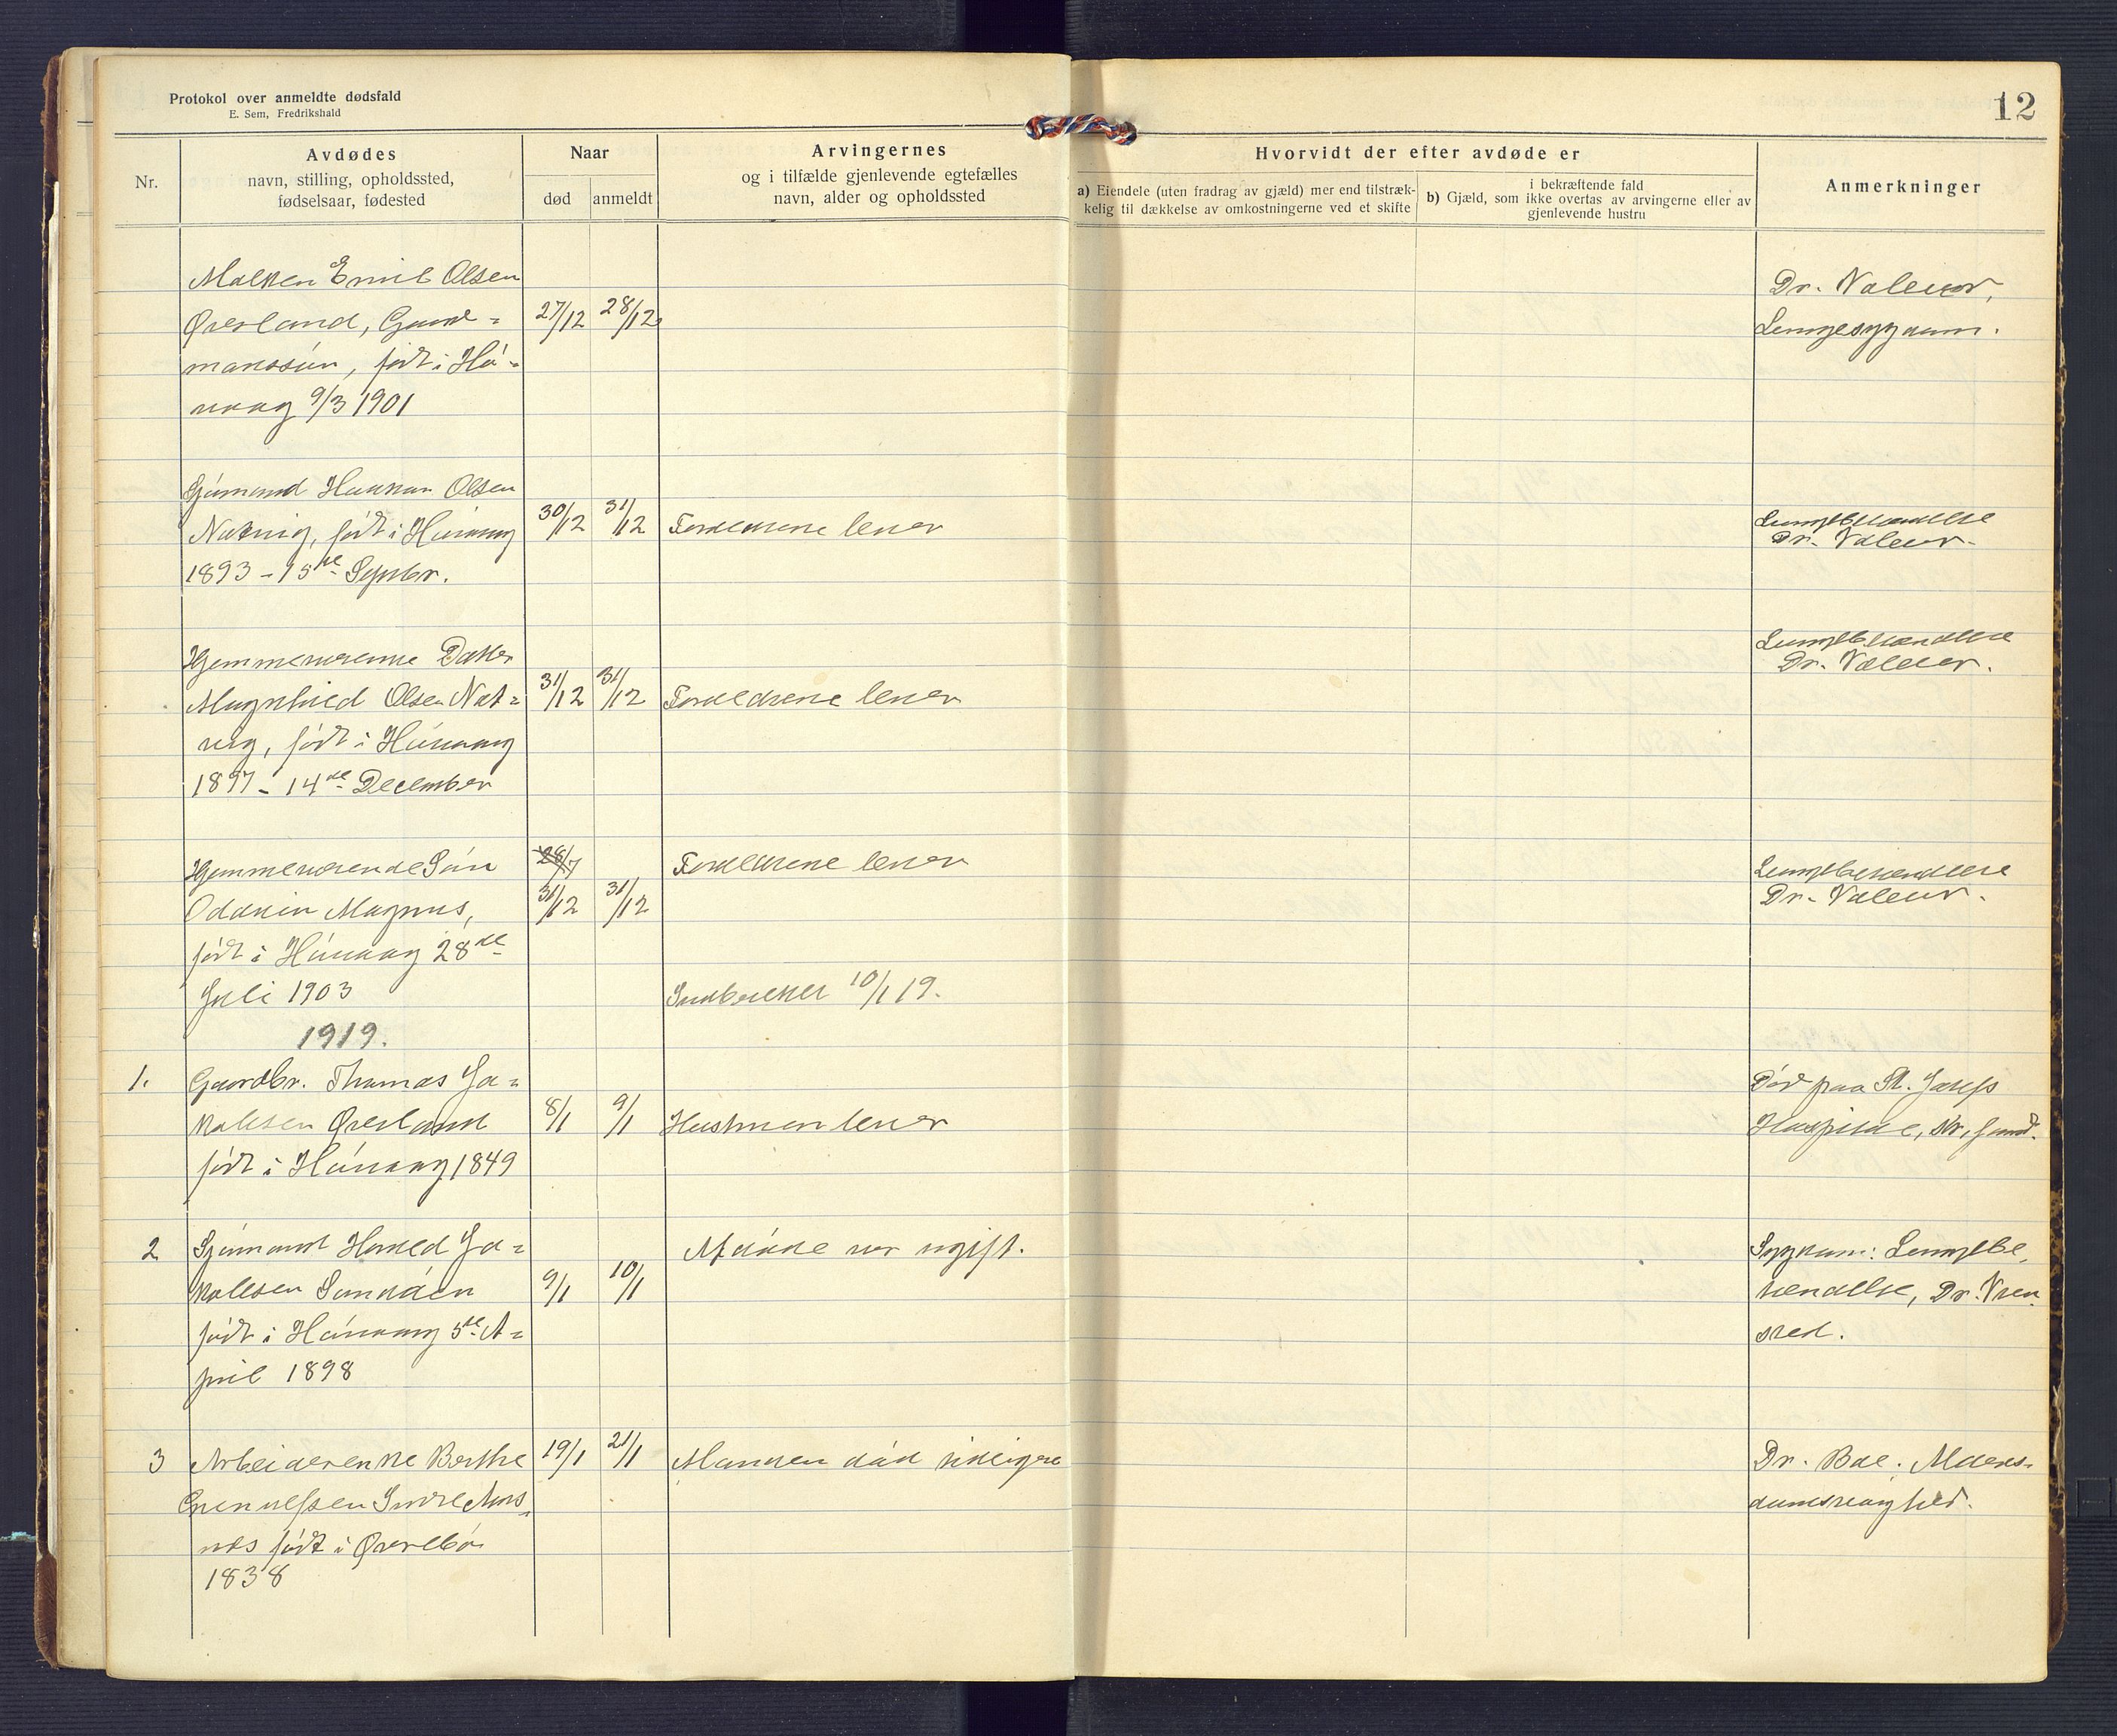 Protokol over anmeldte dødsfald
E. Sem, Fredrikshald
12
Nr.
Avdødes
navn, stilling, opholdssted,
fødselsaar, fødested
Naar
død
anmeldt
Arvingernes
og i tilfælde gjenlevende egtefælles
navn, alder og opholdssted
Hvorvidt der efter avdøde er
a) Eiendele (uten fradrag av gjæld) mer end tilstræk-
kelig til dækkelse av omkostningerne ved et skifte
i bekræftende fald
b) Gjæld, som ikke overtas av arvingerne eller av
gjenlevende hustru
Anmerkninger
Emil Olsen
Øvesland, Gaard=
manssön, födt i Hö=
vaag 9/3 1901
27/12 28/12
Dr. Valeur,
Lungesygdom.
Sjömand Haakon Olsen
Natvig, födt i Hövaag
1893 - 15de Septbr.
30/12 31/12
Foreldrene lever
Lungebetændelse
Dr. Valeur.
Hjemmeværende Datter
Magnhild Olsen Nat=
vig, födt i Hövaag
1897 - 14de December
31/12 31/12
Foreldrene lever
Lungebetændelse
Dr. Valeur.
Hjemmeværende Sön
Oddvin Magnus,
födt i Hövaag 28de
Juli 1903
28/7
31/12 31/12
Foreldrene lever
Lungebetændelse
Dr. Valeur.
Indberettet 10/1 19.
1919.
1. Gaardbr. Thomas Ja=
kobsen Øvesland
födt i Hövaag 1849
8/1 9/1
Hustruen lever
Död paa St. Josefs
Hospital, Kr.sand.
2 Sjömand Harald Ja=
kobsen Sundöen
födt i Hövaag 5te A=
pril 1898
9/1 10/1
Afdöde var ugift.
Sygdom: Lungebe,
tændelse, Dr.
3 Arbeiderenke Berthe
Indre Aars,
nes födt i Øvrebö
1838
19/1 21/1
Manden död tidligere
Dr. Boe. Alders-
domsvaghed.